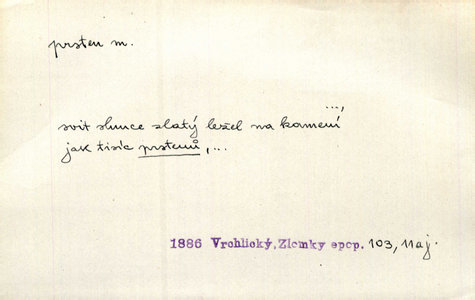 prsten m.
...,
svit slunce zlatý ležel na kamení
jak tisíc prstenů, ...
1886 Vrchlický, Zlomky epop. 103, Máj.